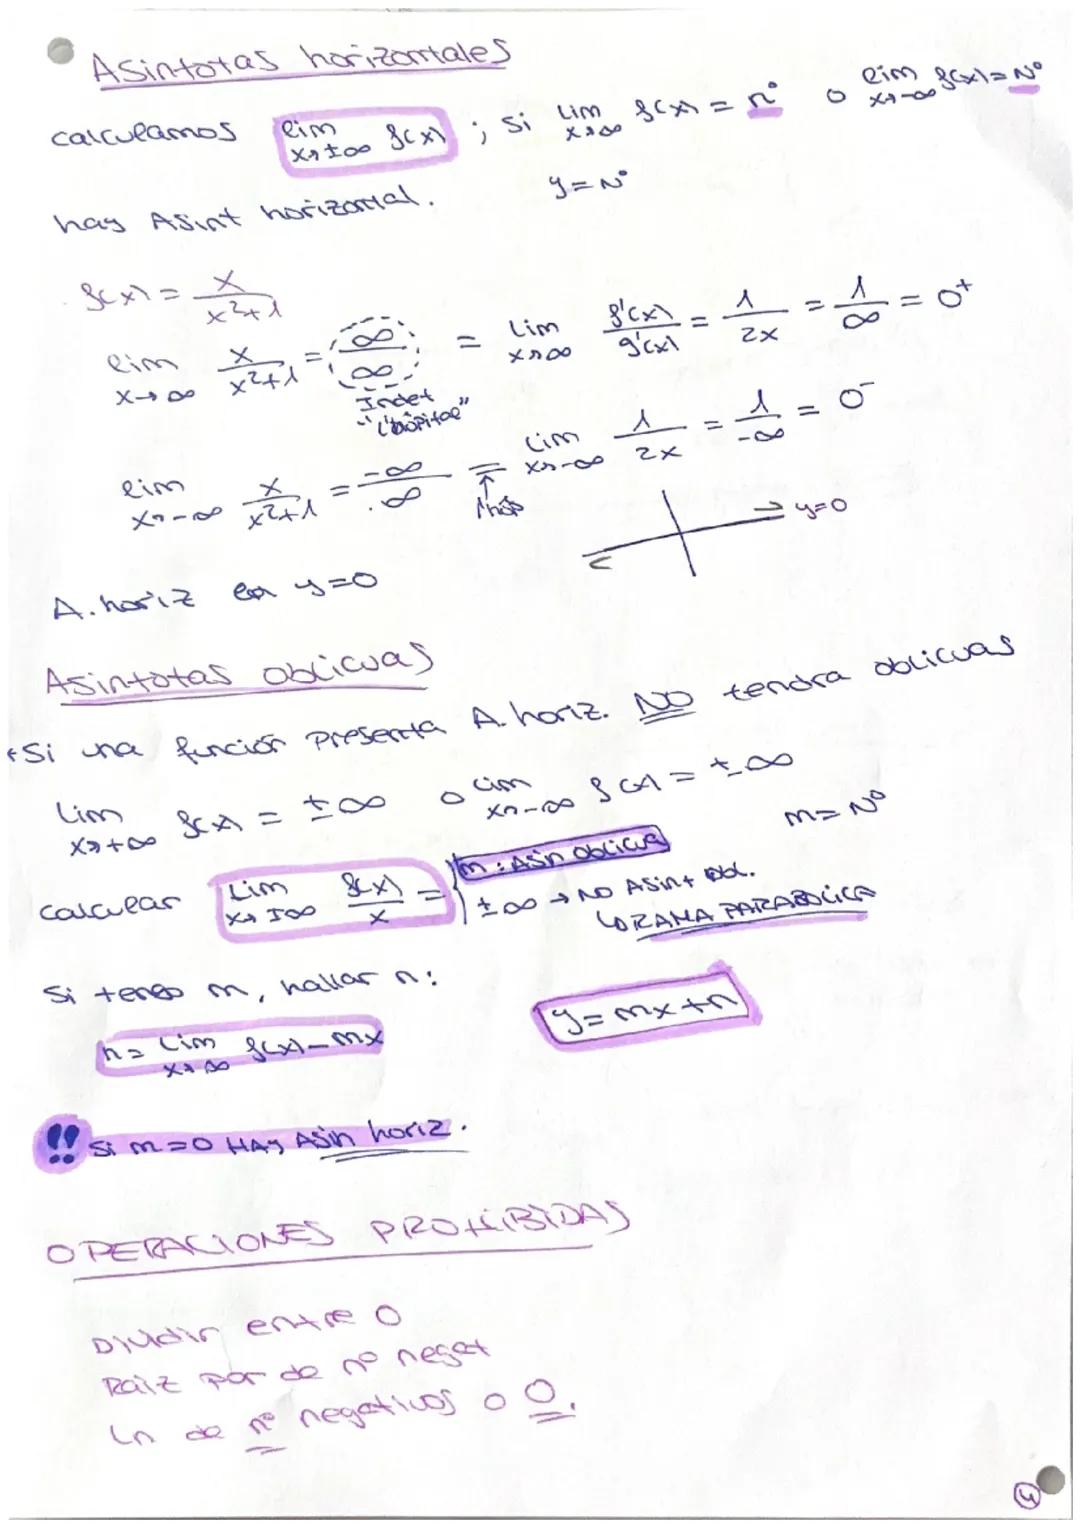 Asintotas horizontales
calculamos lim x→±∞ f(x) ; si lim x→∞ f(x) = nº o lim x→-∞ f(x) = Nº
hay Asint horizontal. y = Nº
f(x) = x/(x²+1)
lim x→∞ x/(x²+1) = ∞/∞ = lim x→∞ f'(x)/g'(x) = 1/2x = 1/∞ = 0⁺
Indet
"L'hôpital"
lim x→-∞ x/(x²+1) = -∞/∞ = lim x→-∞ 1/2x = 1/-∞ = 0⁻
l'hôp
y=0
A. horiz en y=0
Asintotas oblicuas
*Si una función presenta A. horiz. NO tendra oblicuas
Lim x→+∞ f(x) = ±∞ o Lim x→-∞ f(x) = ±∞
m = Nº
calcular Lim x→±∞ f(x)/x = { m : Asin oblicua
±∞ → NO Asint obl.
↳ RAMA PARABOLICA
Si tengo m, hallar n:
n = Lim x→∞ f(x) - mx
y = mx+n
!! Si m=0 HAY Asin horiz.
OPERACIONES PROHIBIDAS
Dividir entre 0
Raiz par de nº negat
Ln de nº negativos o 0.
4